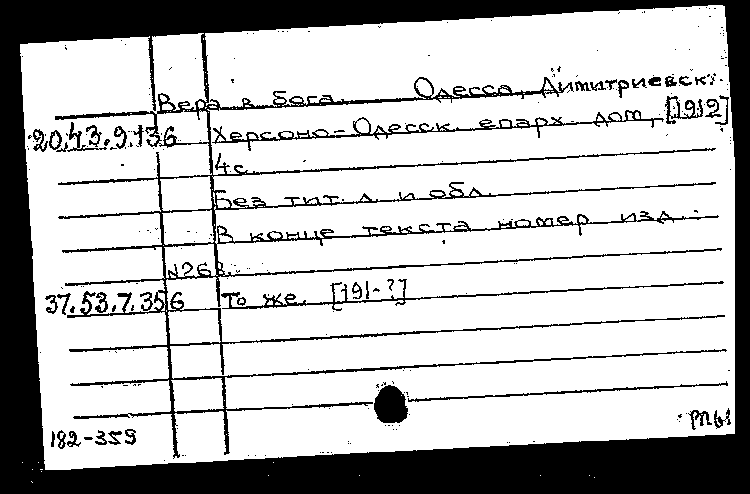 Вера в бога. Одесса, Димитриевск.
20.43.9.136 Херсоно-Одесск. епарх. дом, [1912]
4 с.
Без тит. л. и обл.
В конце текста номер изд.:
№268.
37.53.7.356 То же. [191-?]
182-359